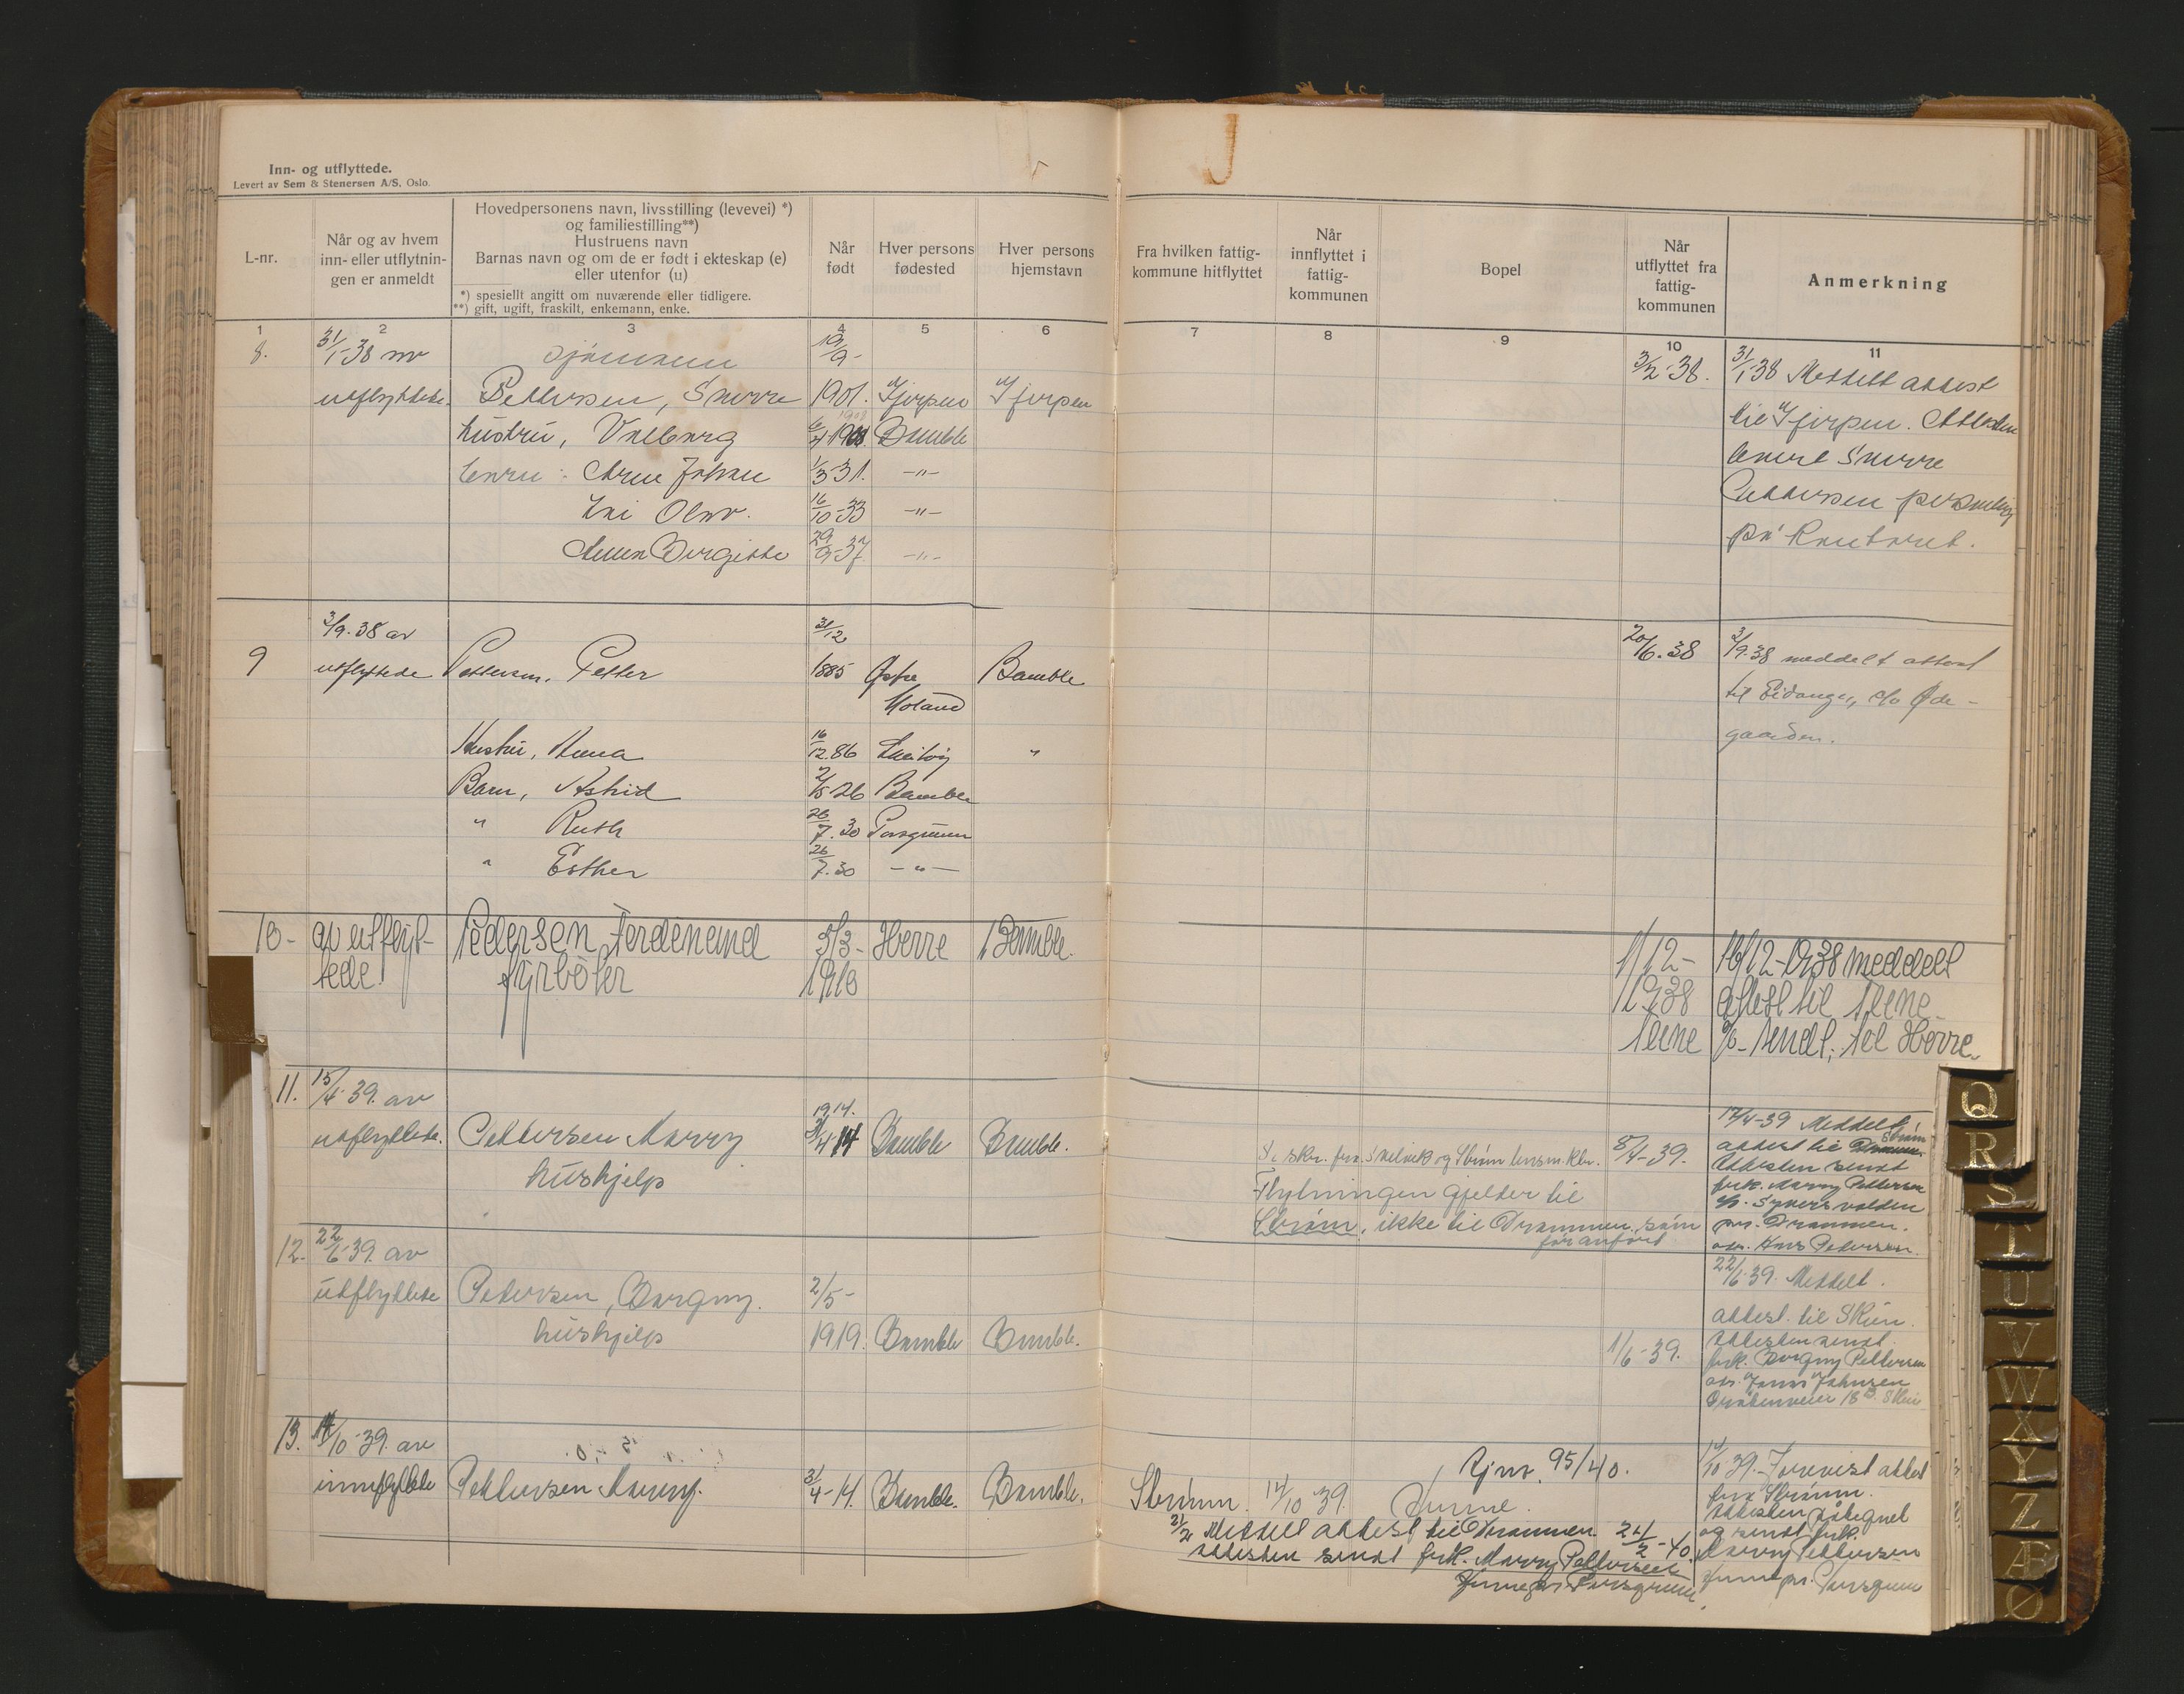 Inn- og utflyttede.
Levert av Sem & Stenersen A/S, Oslo.
L-nr.
Når og av hvem
inn- eller utflytnin-
gen er anmeldt
Hovedpersonens navn, livsstilling (levevei) *)
og familiestilling**)
Hustruens navn
Barnas navn og om de er født i ekteskap (e)
eller utenfor (u)
*) spesiellt angitt om nuværende eller tidligere.
**) gift, ugift, fraskilt, enkemann, enke.
Når
født
Hver persons
fødested
Hver persons
hjemstavn
Fra hvilken fattig-
kommune hitflyttet
Når
innflyttet i
fattig-
kommunen
Bopel
Når
utflyttet fra
fattig-
kommunen
Anmerkning
1 2 3 4 5 6 7 8 9 10 11
8. 31/1-38 av sjömann 19/9- 3/2-38. 31/1-38 Meddelt attest
utflyttede. Pettersen, Snorre 1901. Gjerpen Gjerpen til Gjerpen. Attesten
hustru, Valborg 6/4 1908 Bamble levert Snorre
barn: Arne Johan 1/3-31. -"- Pettersen personlig
Kai Olav. 16/10-33 -"- på kontoret.
Anna Birgitte 29/9-37. -"-
3/9.38 av 31/12 20/6.38 3/9.38 meddelt attest
9 utflyttede Pettersen, Petter 1885 Østre Bamble til Eidanger, c/o Øde-
Moland gaarden.
Hustru, Anna 16/12.86 "
Barn, Astrid 2/8 26 Bamble
" Ruth 26/7.30 Porsgrunn
" Esther 26/7.30 -"-
10- av utflyt- Pedersen, Ferdenand 5/3- Herre Bamble. 1/12- 16/12-1938 meddelt
tede fyrböter 1910 1938 attest til
sendt til Herre
11. 15/4-39. av 1914. 17/4-39 Meddelt
utflyttede. Pettersen Marry 3/4 14 Bamble Bamble. Se skr. fra Skelvik og Strøm lensm.ktr. 8/4-39. attest til Strøm
hushjelp Flytningen gjelder til Attesten sendt
frk. Marry Pettersen
Strøm, ikke til Drammen som pr. Drammen.
før anført adr. Hans Pedersen.
12. 22/6-39. av 22/6-39. Meddelt.
utflyttede Petersen, Borgny. 2/5- attest til Skien.
hushjelp 1919. Bamble Bamble. 1/6-39. Attesten sendt
frk. Borgny Pettersen
18 B. Skien
13. 14/10-39. av Rjnr. 95/40. 14/10 39. Forevist attest
innflyttede Pettersen Marry. 3/4-14. Bamble. Bamble. Strømm. 14/10 39. fra Strømm.
21/2 Meddelt attest til Drammen. 21/2-40. Attesten påtegnet
Attesten sendt frk. Marry Pettersen og sendt frk.
pr. Porsgrunn. Marry Pettersen
pr. Porsgrunn
Q
R
S
T
U
V
W
X
Y
Z
Æ
Ø